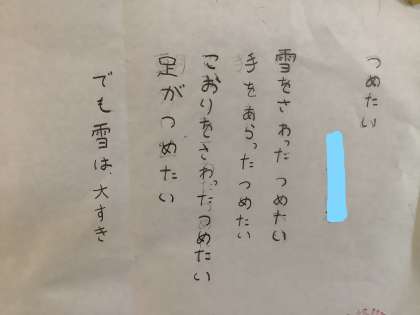 つめたい
雪をさわった つめたい
手をあらった つめたい
こおりをさわった つめたい
足が つめたい
でも雪は、大すき